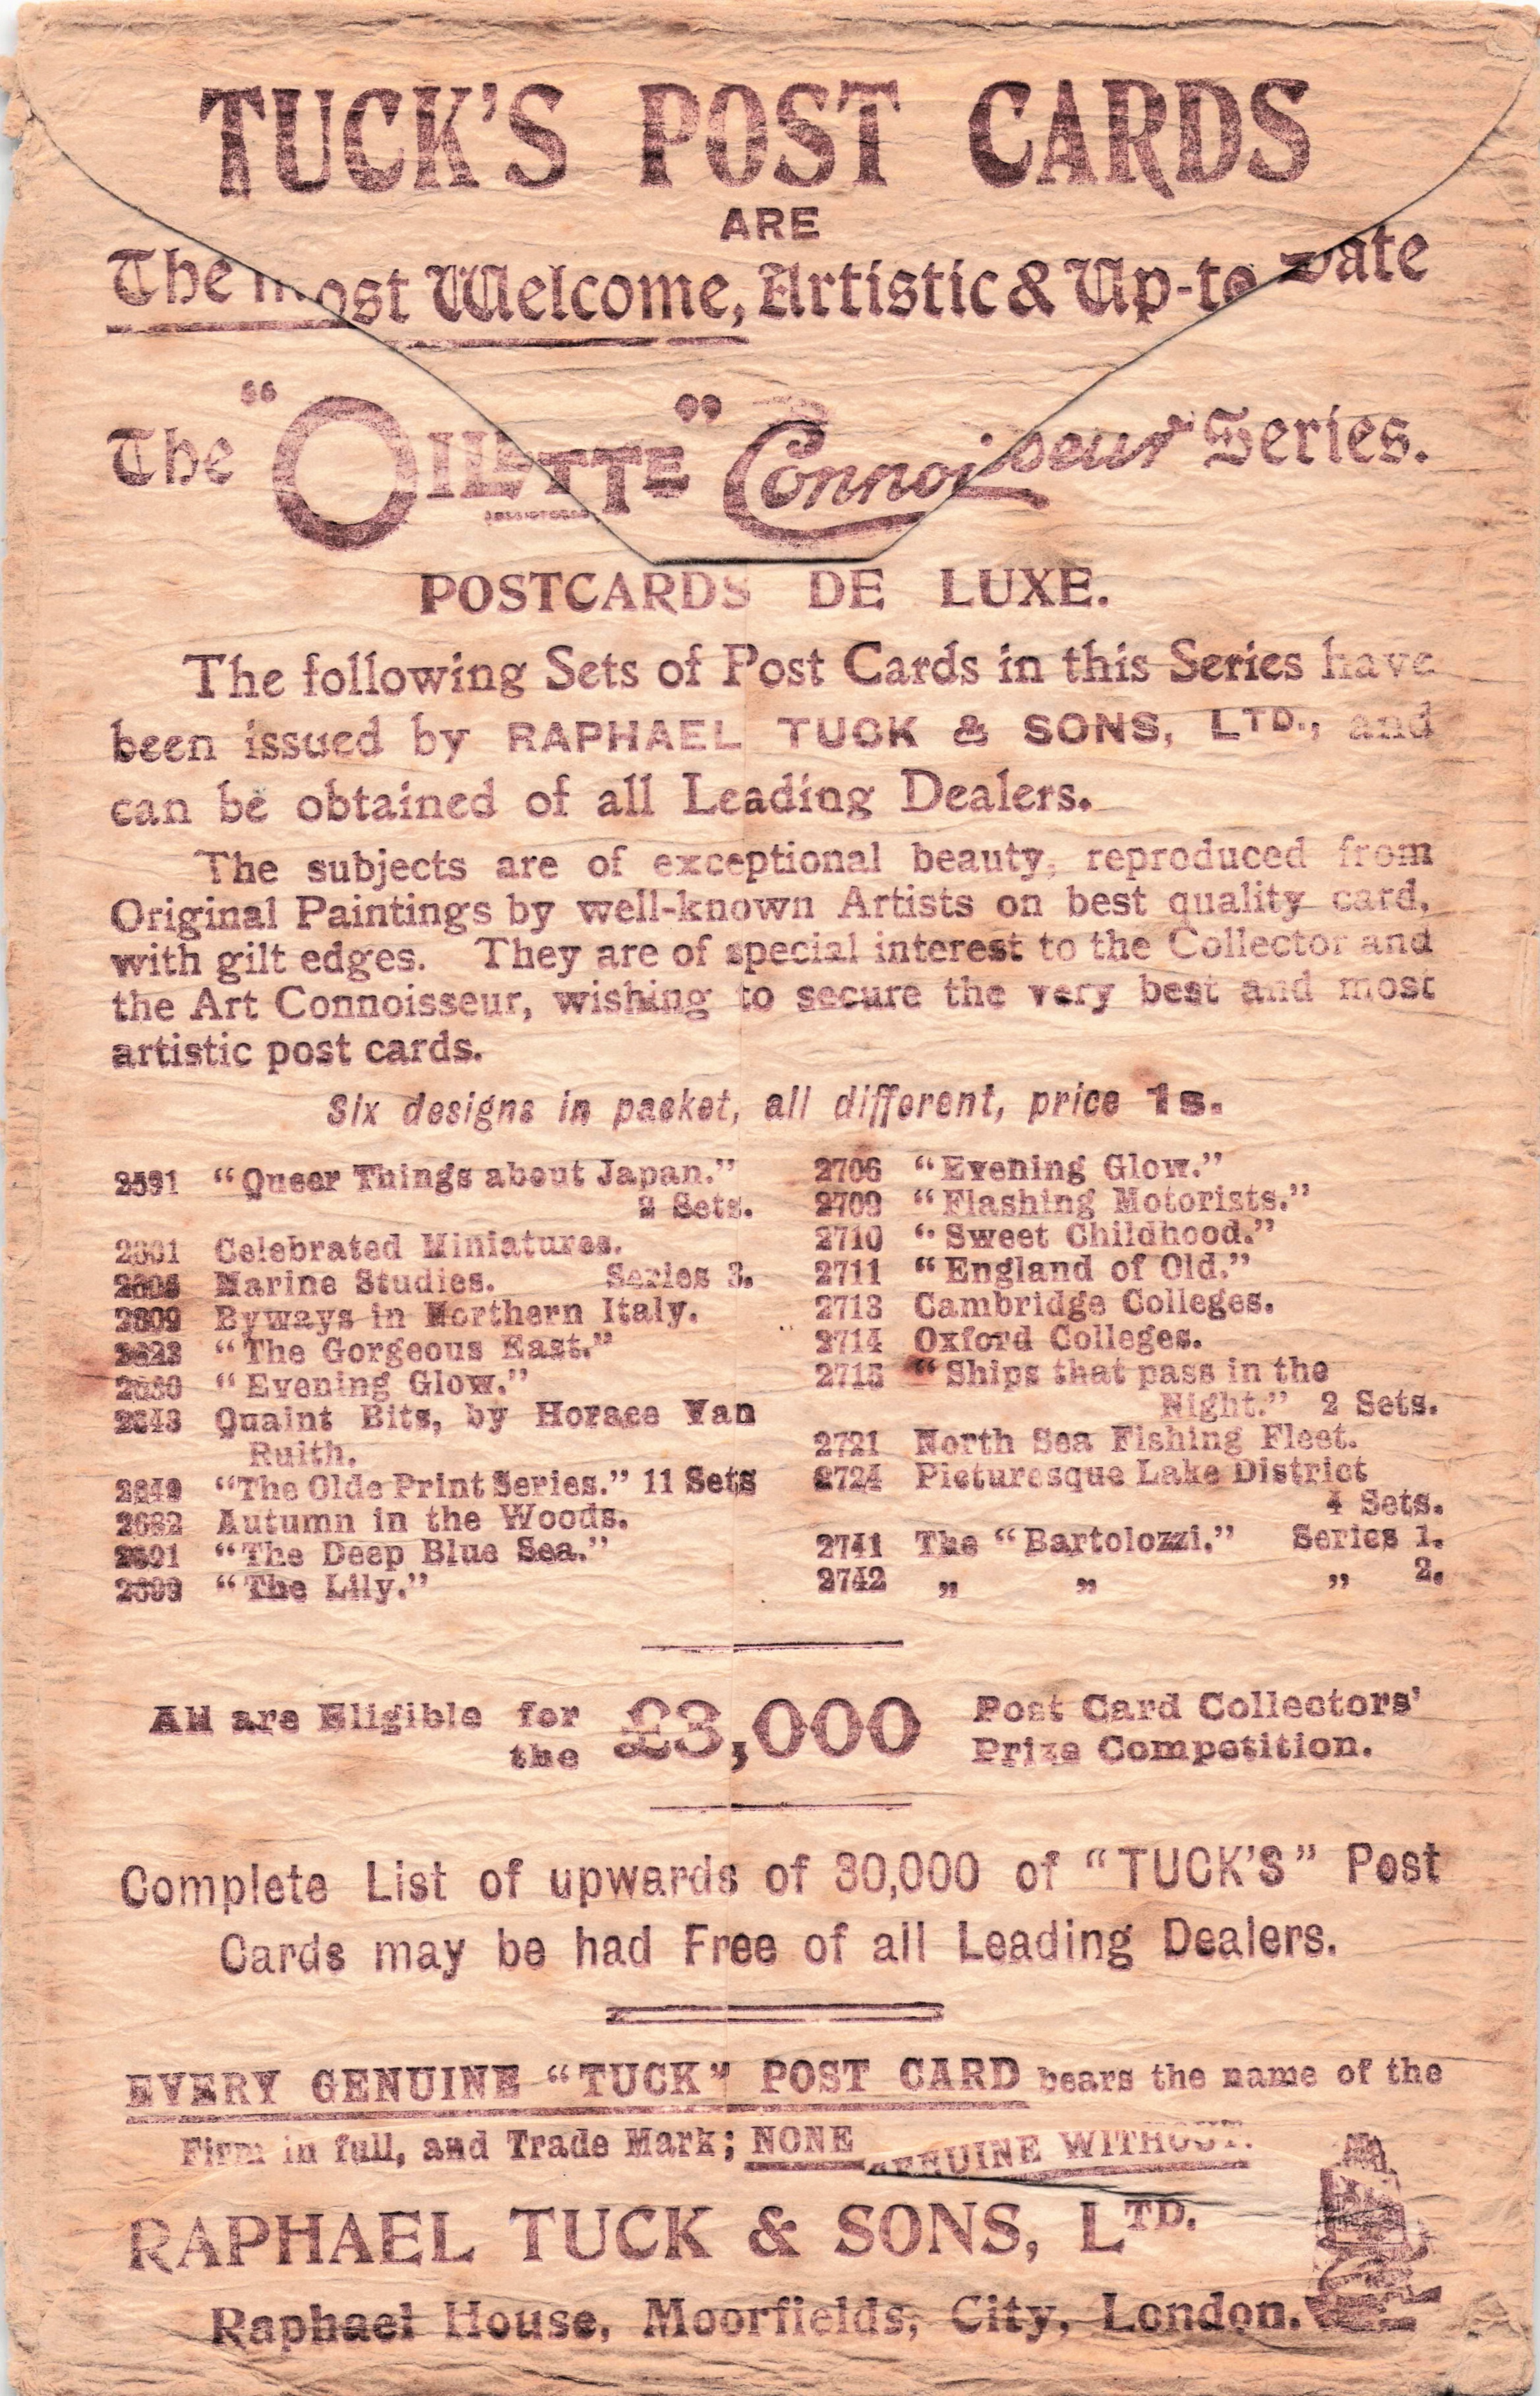 TUCK'S POST CARDS
ARE
The most Welcome, Artistic & Up-to Date
The "OILETTE" Connoisseur Series.
POSTCARDS DE LUXE.
The following Sets of Post Cards in this Series have
been issued by RAPHAEL TUCK & SONS, LTD., and
can be obtained of all Leading Dealers.
The subjects are of exceptional beauty, reproduced from
Original Paintings by well-known Artists on best quality card,
with gilt edges. They are of special interest to the Collector and
the Art Connoisseur, wishing to secure the very best and most
artistic post cards.
Six designs in packet, all different, price 1s.
2591 "Queer Things about Japan."
2 Sets.
2601 Celebrated Miniatures.
Marine Studies. Series 3.
2609 Byways in Northern Italy.
2623 "The Gorgeous East."
"Evening Glow."
2648 Quaint Bits, by Horace Van
Ruith.
2649 "The Olde Print Series." 11 Sets
2682 Autumn in the Woods.
2691 "The Deep Blue Sea."
2699 "The Lily."
2706 "Evening Glow."
2709 "Flashing Motorists."
2710 "Sweet Childhood."
2711 "England of Old."
2713 Cambridge Colleges.
2714 Oxford Colleges.
2715 "Ships that pass in the
Night." 2 Sets.
2721 North Sea Fishing Fleet.
2724 Picturesque Lake District
4 Sets.
2741 The "Bartolozzi." Series 1.
2742 „ „ „ 2.
All are Eligible for
the £3,000 Post Card Collectors'
Prize Competition.
Complete List of upwards of 30,000 of "TUCK'S" Post
Cards may be had Free of all Leading Dealers.
EVERY GENUINE "TUCK" POST CARD bears the name of the
Firm in full, and Trade Mark; NONE GENUINE WITHOUT.
RAPHAEL TUCK & SONS, LTD.
Raphael House, Moorfields, City, London.